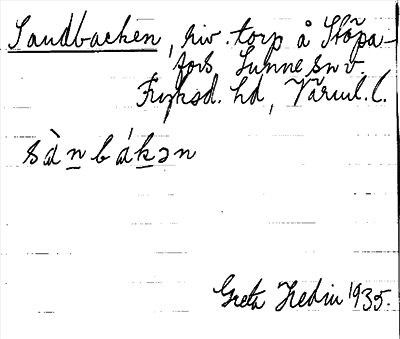 Sandbacken, riv. torp å Stöpa-
fors Sunne sn v.
Fryksd. hd, Värml. l.
sànbákən
Greta Hedin 1935.